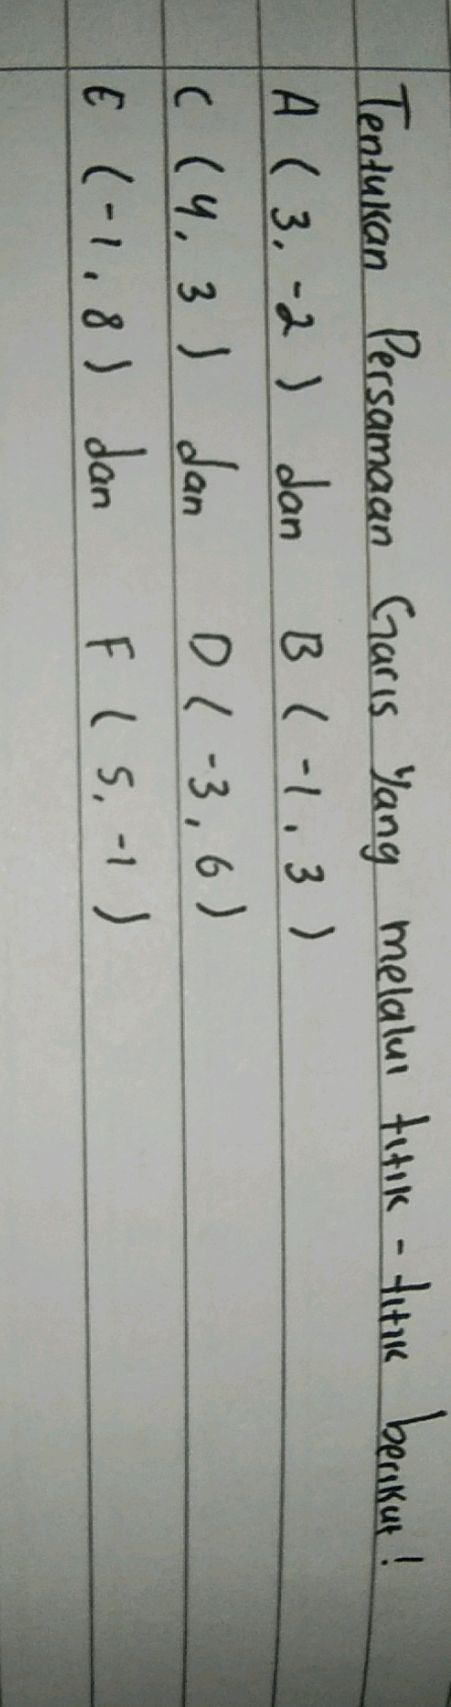 Tentukan Persamaan Garis Yang melalui titik - titik berikut !
A ( 3, -2 ) dan B ( -1, 3 )
C ( 4, 3 ) dan D ( -3, 6 )
E ( -1, 8 ) dan F ( 5, -1 )